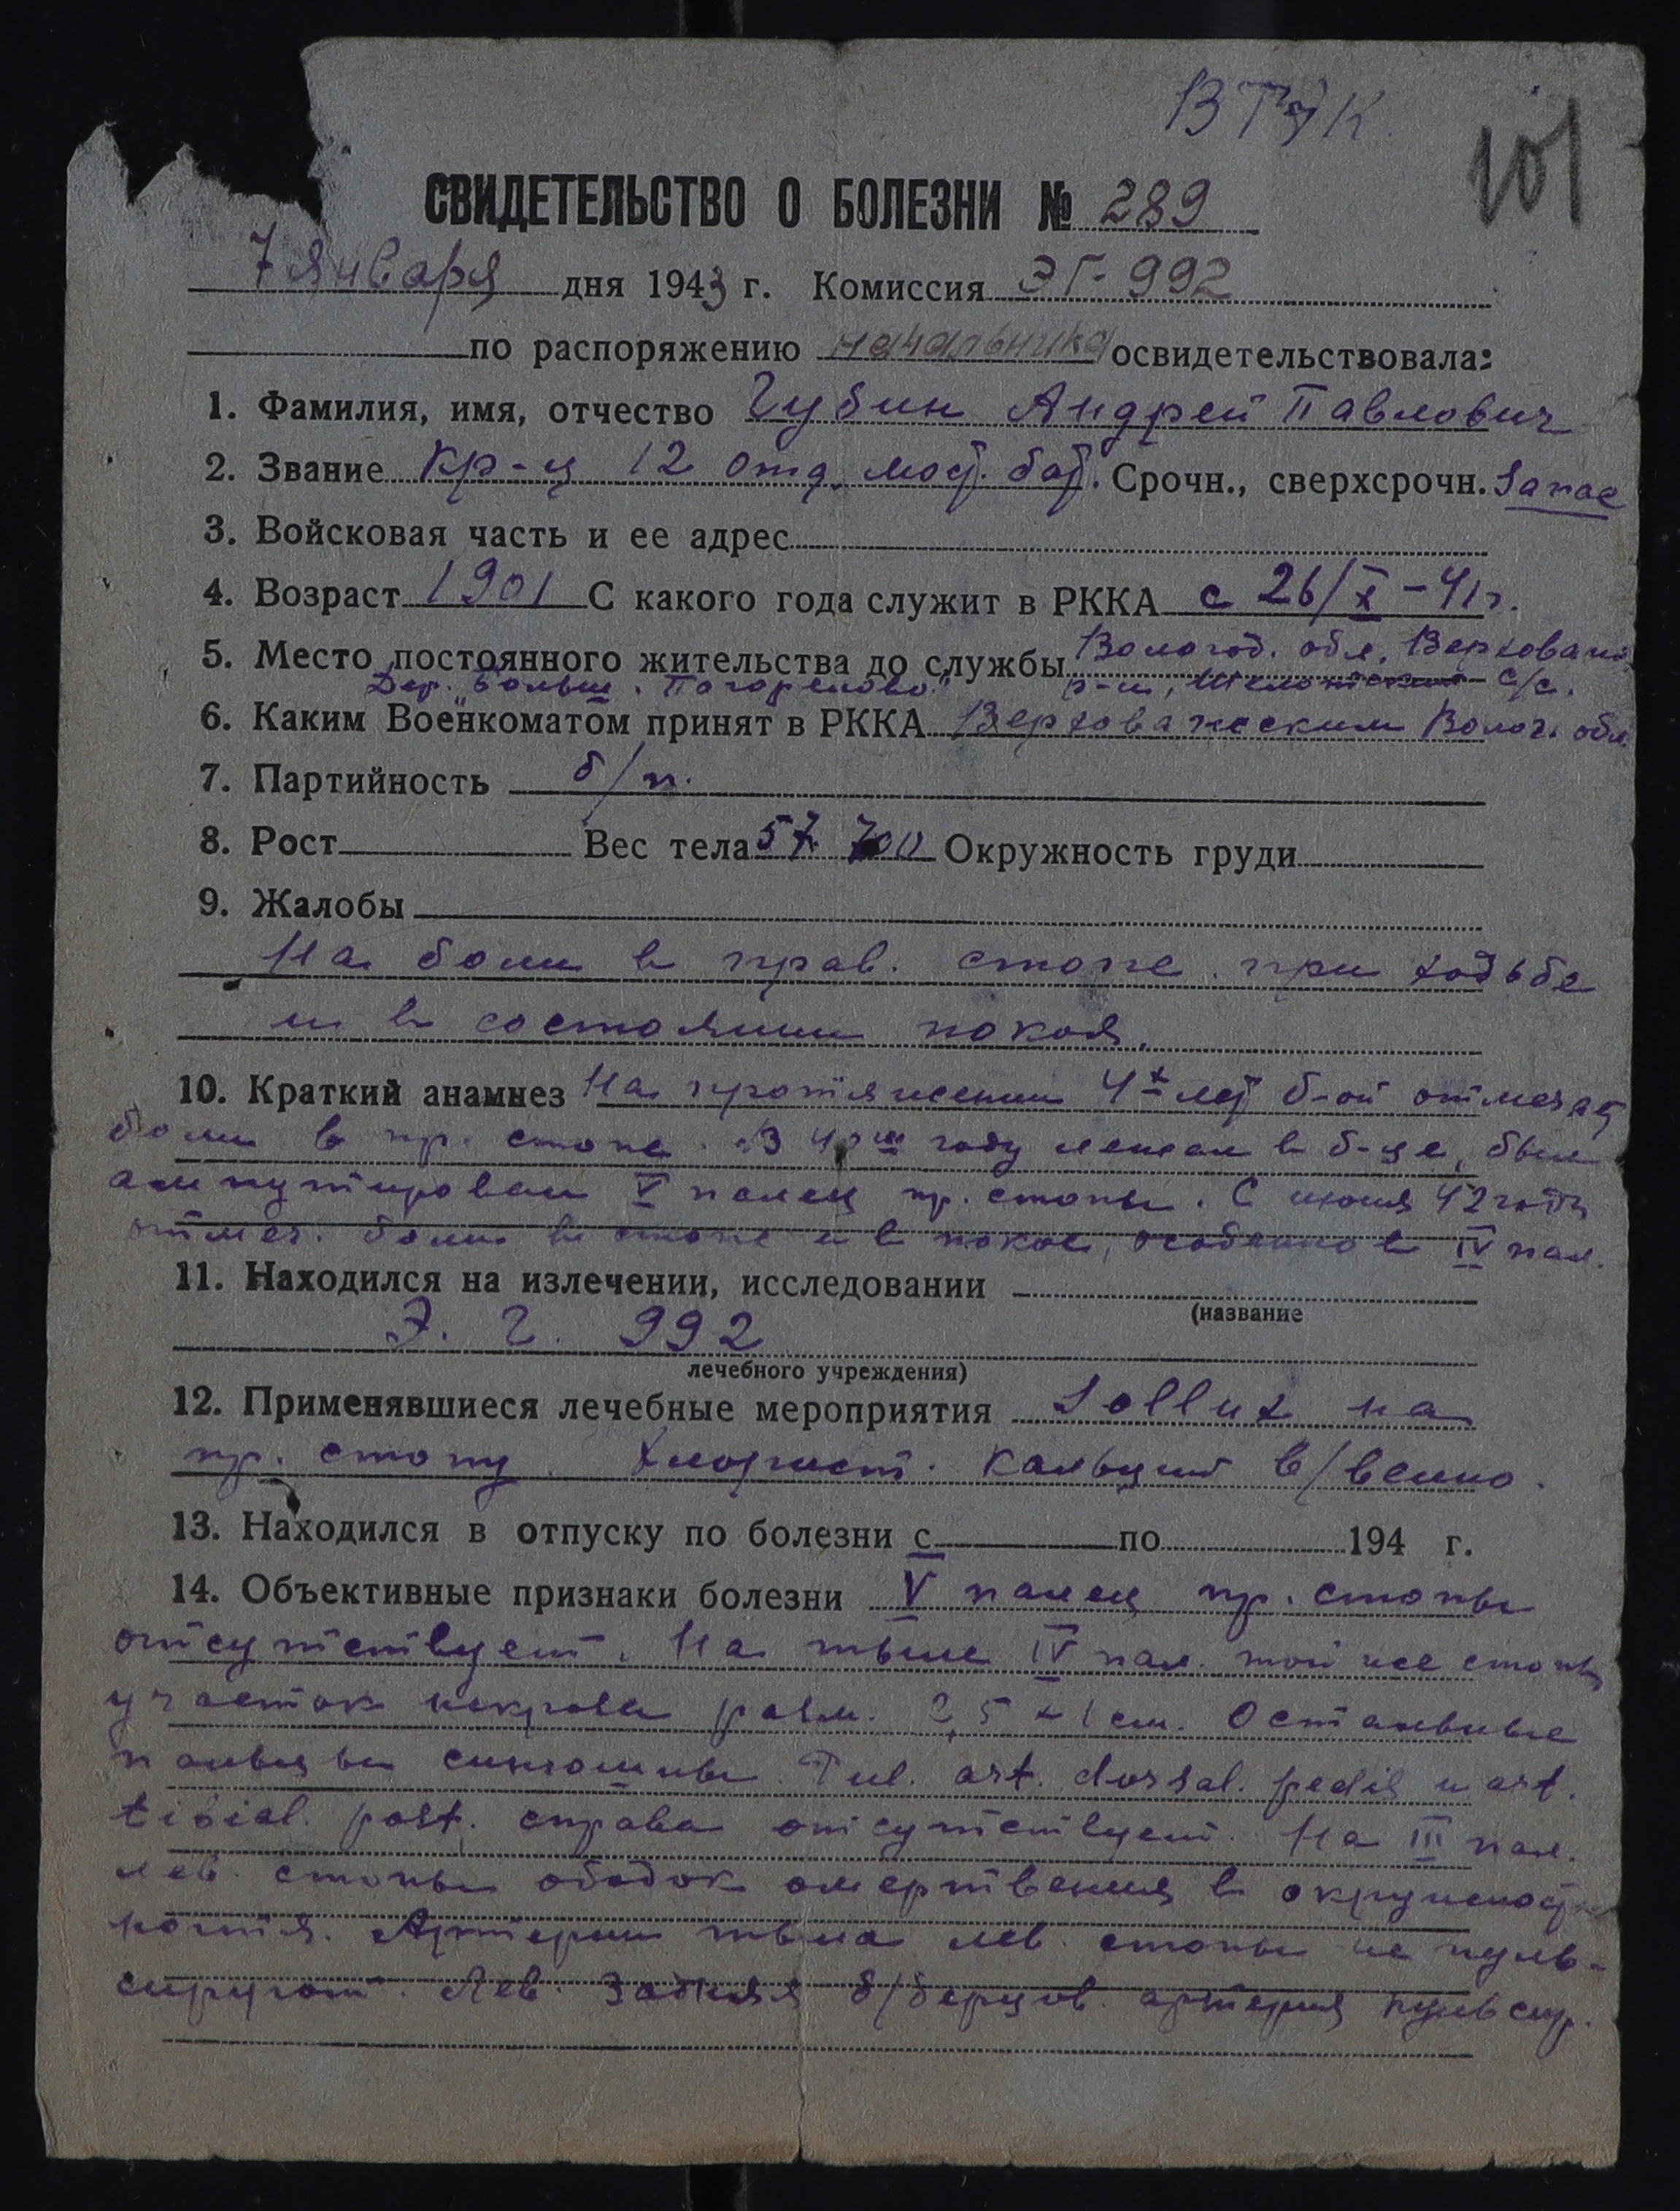 101
СВИДЕТЕЛЬСТВО О БОЛЕЗНИ № 289
7 января дня 1943 г. Комиссия ЭГ-992
по распоряжению начальника освидетельствовала:
1. Фамилия, имя, отчество Губин Андрей Павлович
2. Звание Кр-ц 12 отд. мост. бат. Срочн., сверхсрочн. Запас
3. Войсковая часть и ее адрес
4. Возраст 1901 С какого года служит в РККА с 26/X-41г.
5. Место постоянного жительства до службы Волог. обл. Верховажс
Дер. Больш. "Погорелово" р-н, Шелотский с/с.
6. Каким Военкоматом принят в РККА Верховажским Волог. обл.
7. Партийность б/п.
8. Рост Вес тела 57 700 Окружность груди
9. Жалобы
На боли в прав. стопе при ходьбе
и в состоянии покоя.
10. Краткий анамнез На протяжении 4х лет б-ой отмечает
боли в пр. стопе. В году лежал в б-це, был
ампутирован V палец пр. стопы. С июня 42 года
отмеч. боли в стопе и в покое, особенно в IV пал.
11. Находился на излечении, исследовании
(название
Э. Г. 992
лечебного учреждения)
12. Применявшиеся лечебные мероприятия Sollux на
пр. стопу. Хлорист. кальций в/венно.
13. Находился в отпуску по болезни с по 194 г.
14. Объективные признаки болезни V палец пр. стопы
отсутствует. На тыле IV пал. той же стопы
участок некроза разм. 2,5 х 1 см. Остальные
пальцы синюшны. Pul. art. dorsal. pedis и art.
tibial. post. справа отсутствует. На III пал.
лев. стопы ободок омертвения в окружност
ногтя. Артерии тыла лев. стопы не пуль-
сируют. Лев. задняя б/берцов. артерия пульсир.